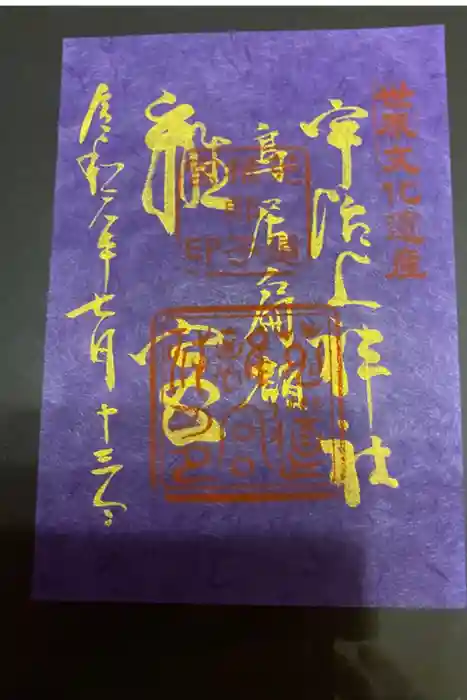 世界文化遺産
宇治上神社
鳥居扁額
離宮
令和二年七月十三日